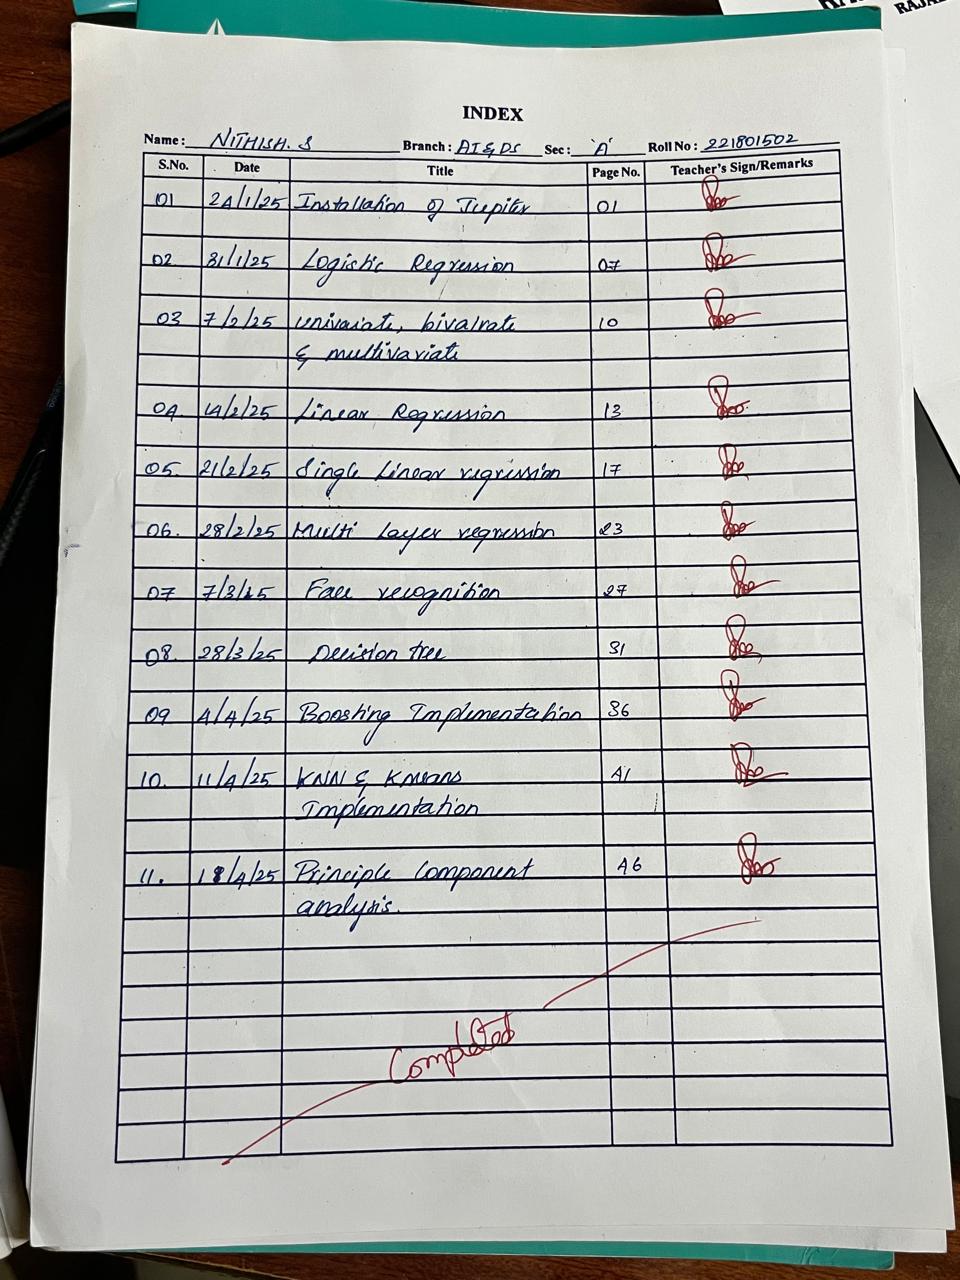 RAJA
INDEX
Name: NITHISH. S Branch: AI & DS Sec: 'A' Roll No: 221801502
S.No. Date Title Page No. Teacher's Sign/Remarks
01 24/1/25 Installation of Jupiter 01
02 31/1/25 Logistic Regression 07
03 7/2/25 Univaiate, bivalrate 10
& multivariate
04. 14/2/25 Linear Regression 13
05. 21/2/25 Single Linear regression 17
06. 28/2/25 Multi Layer regression 23
07 7/3/25 Face recognition 27
08. 28/3/25 Decision tree 31
09 4/4/25 Boosting Implementation 36
10. 11/4/25 KNN & KMeans 41
Implementation
11. 18/4/25 Principle Component 46
analysis.
Completed